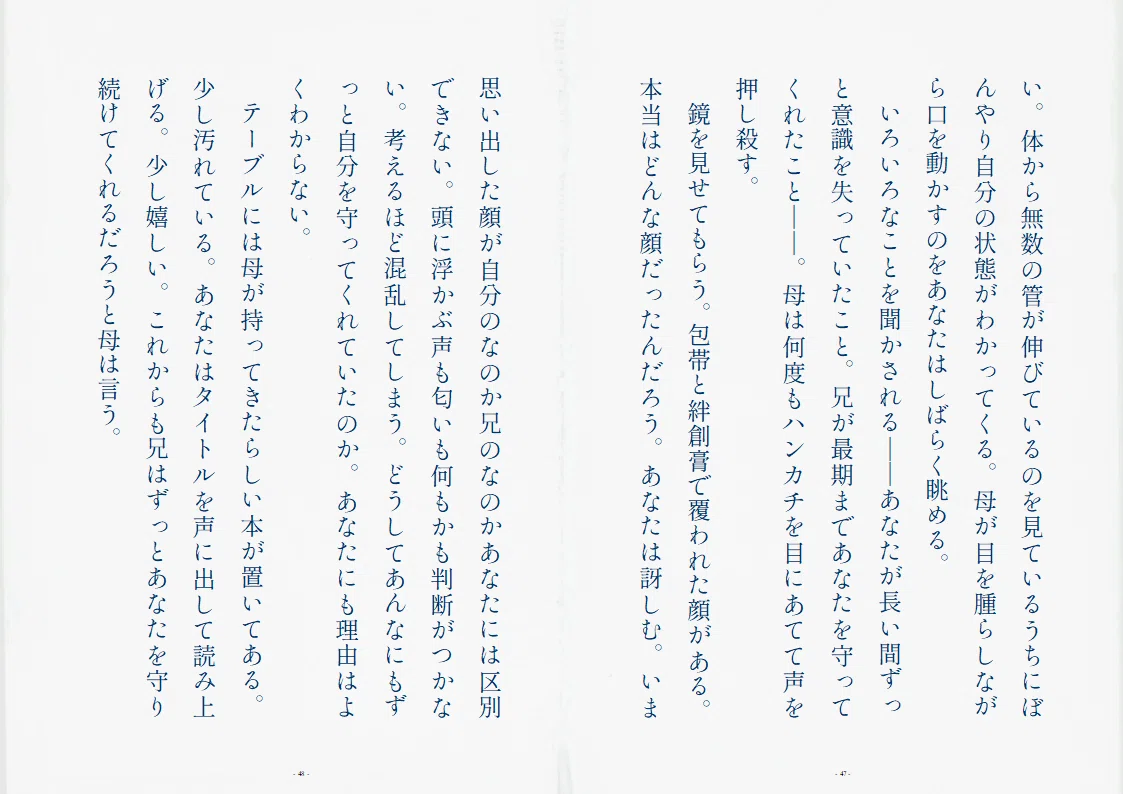 い。体から無数の管が伸びているのを見ているうちにぼ
んやり自分の状態がわかってくる。母が目を腫らしなが
ら口を動かすのをあなたはしばらく眺める。
いろいろなことを聞かされる――あなたが長い間ずっ
と意識を失っていたこと。兄が最期まであなたを守って
くれたこと――。母は何度もハンカチを目にあてて声を
押し殺す。
鏡を見せてもらう。包帯と絆創膏で覆われた顔がある。
本当はどんな顔だったんだろう。あなたは訝しむ。いま
- 47 -
思い出した顔が自分のなのか兄のなのかあなたには区別
できない。頭に浮かぶ声も匂いも何もかも判断がつかな
い。考えるほど混乱してしまう。どうしてあんなにもず
っと自分を守ってくれていたのか。あなたにも理由はよ
くわからない。
テーブルには母が持ってきたらしい本が置いてある。
少し汚れている。あなたはタイトルを声に出して読み上
げる。少し嬉しい。これからも兄はずっとあなたを守り
続けてくれるだろうと母は言う。
- 48 -